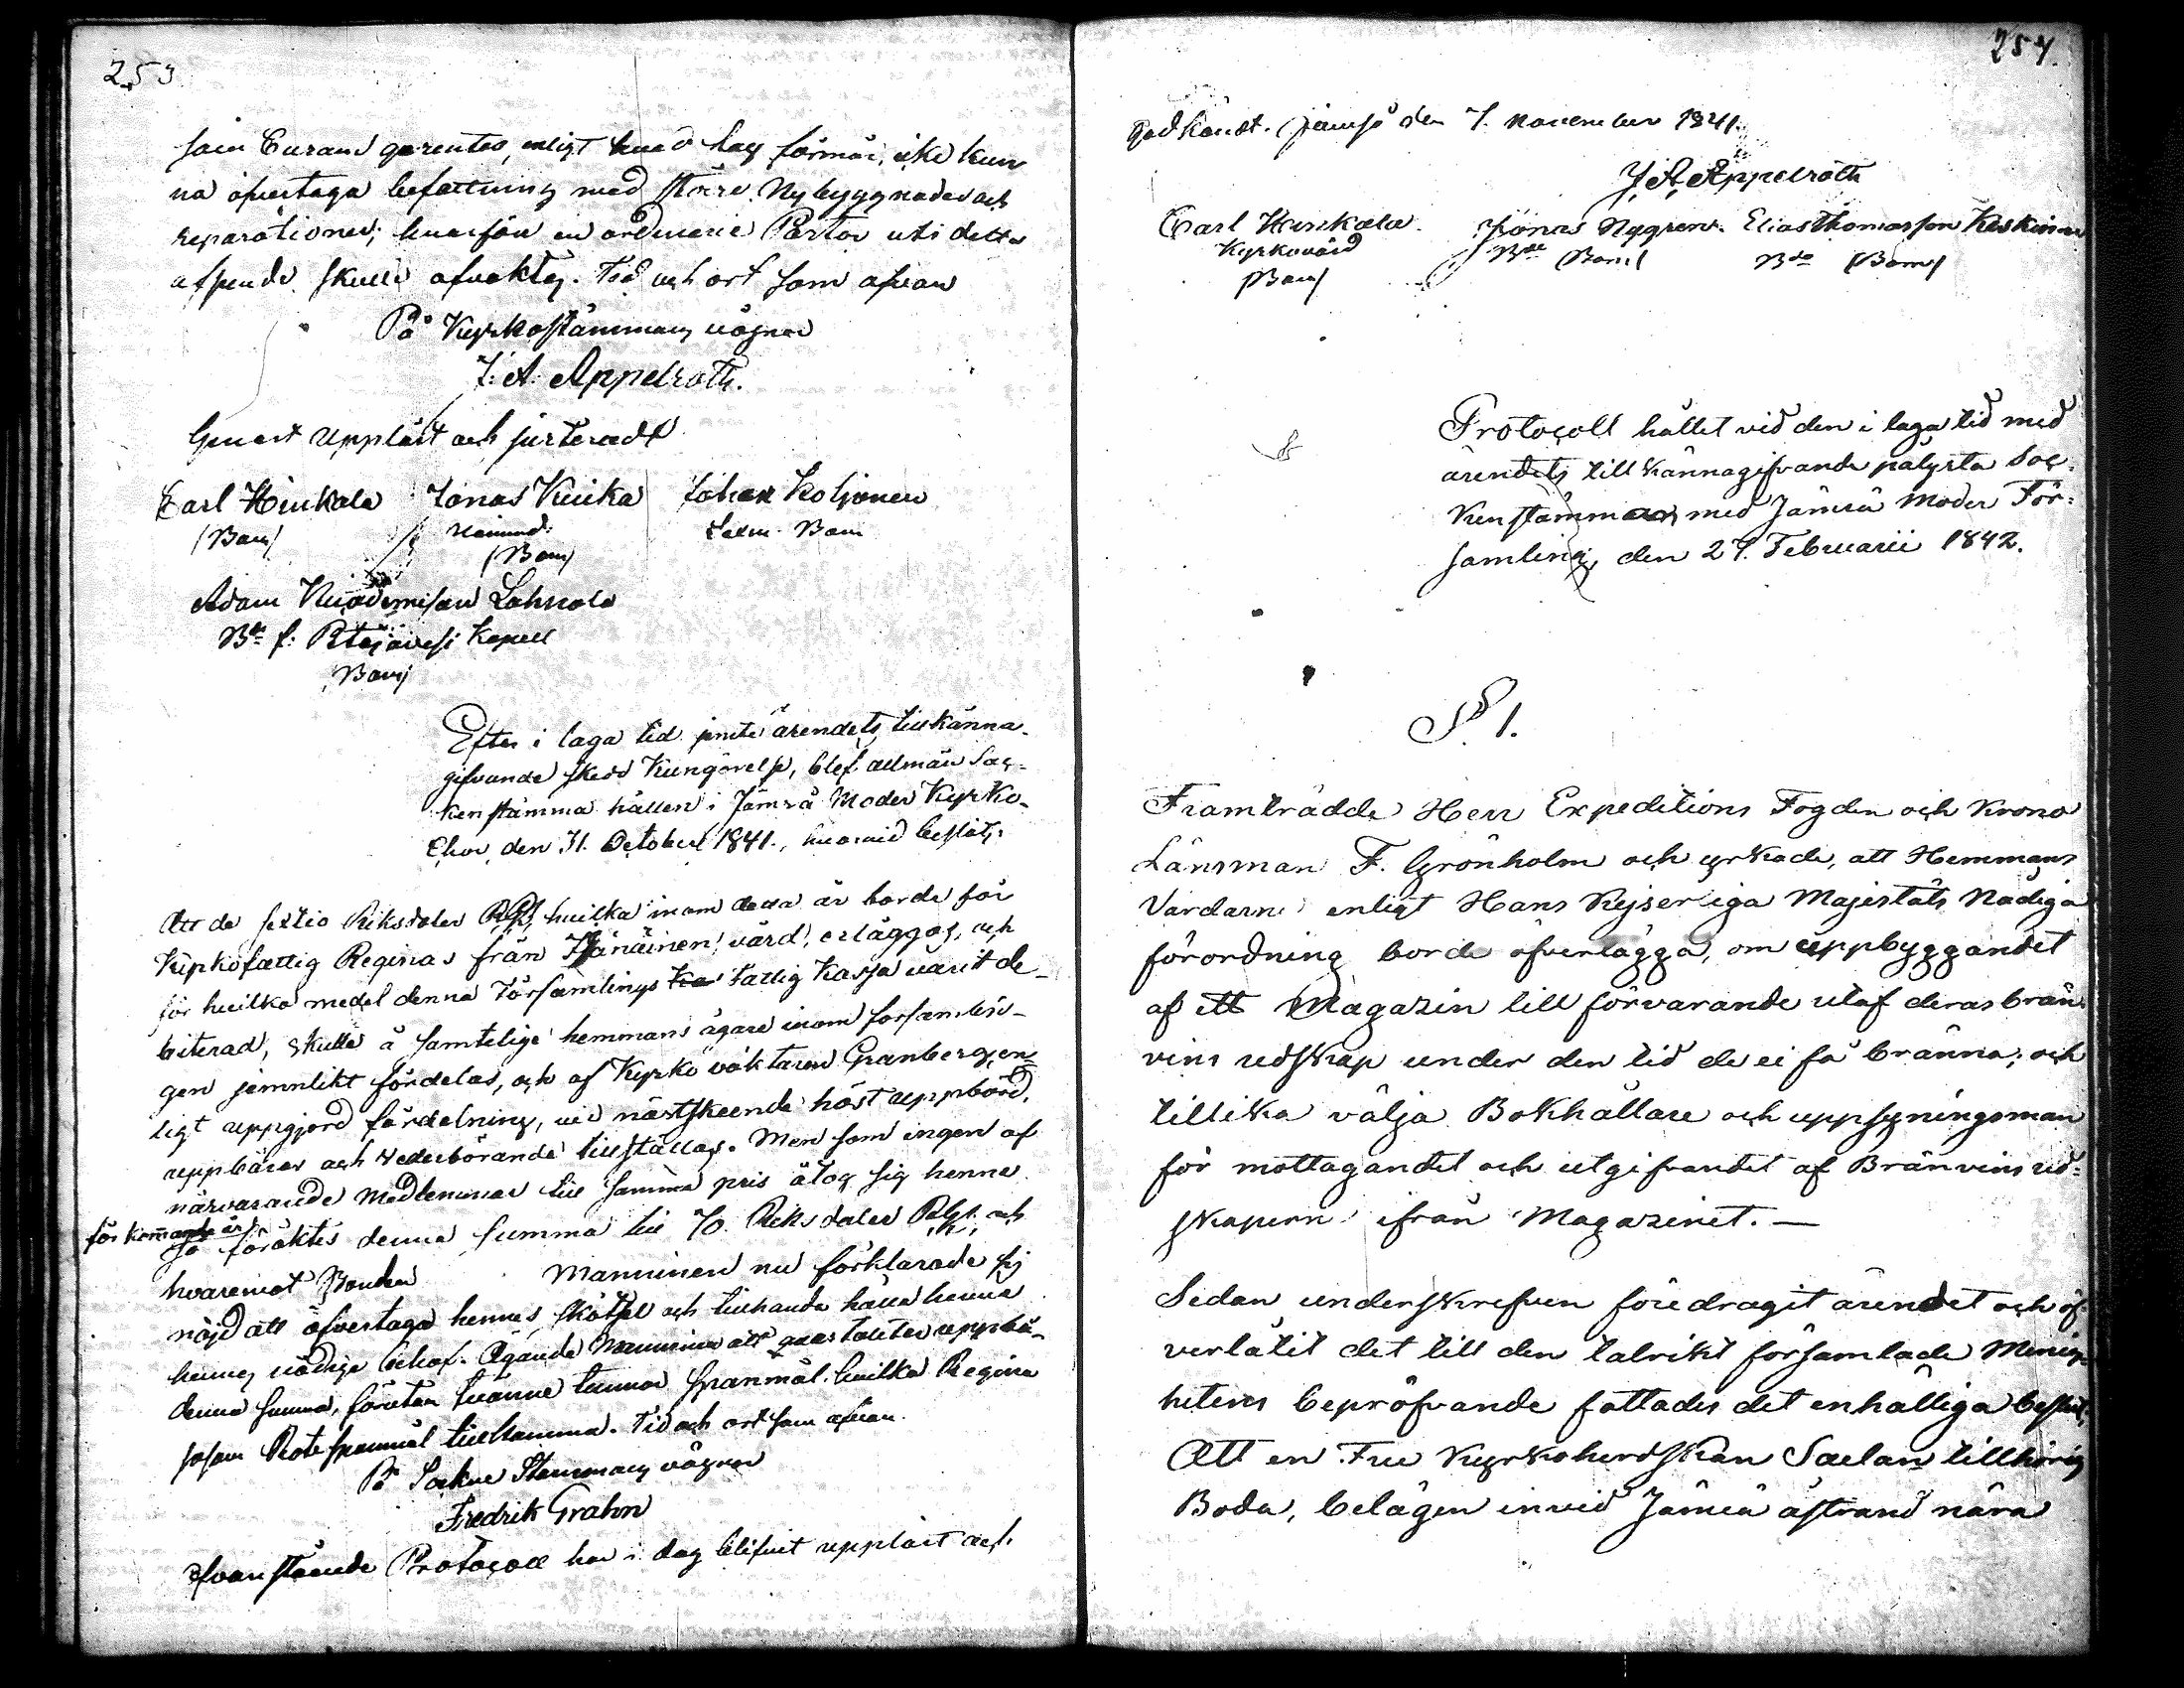 253
som Curam gerentes, enligt hvad lag förmår, icke kun
na öfvertaga befattning med större Nybyggnader och
reparationer; hvarför en ordinarie Pastor uti detta
afseende skulle afvaktas. Tid och ort som ofvan
På Kyrkostämmans vägnar
J. A. Appelroth.
Genast uppläst och justeradt
Carl Hinkala Jonas Kuika Johan Koljonen
(Bom) Nämnd. Bom
(Bom)
Adam Lahnala
Bde f: Kapell
(Bom)
Efter i laga tid ärendets tillkänna-
gifvande skedd Kungörelse, blef allmän Soc-
kenstämma hållen i Jämsä Moder Kyrko-
Chor, den 31. October 1841., hvarvid beslöts:
Att de sextio Riksdaler RGs, hvilka inom detta år borde för
Kyrkofattig Reginas från vård, erläggas, och
för hvilka medel denna Församlings Ka Fattig Kassa varit de-
biterad, skulle å samtelige hemmans ägare inom församlin-
gen jemnlikt fördelas, och af Kyrko väktaren Granberg, en-
ligt uppgjord fördelning, vid nästskeende höst uppbörd,
uppbäras och vederbörande tillställas. Men som ingen af
närvarande Medlemmar till samma pris åtog sig henne
för kommande år
så föröktes denna summa till 70. Riksdaler RGs. och
hvaremot Bonden Manninen nu förklarade sig
nöjd att öfvertaga hennes skötsel och tillhanda hålla henne
hennes nödige behof. Ägande Manninen att uppbä-
denna summa, förutan tvänne tunnor spanmål hvilka Regina
såsom Rotespanmål tillkomma. Tid och ort som ofvan.
På Sockne Stämmans vägnar
Fredrik Grahn
Ofvanstående Protocoll har i dag blifvit uppläst och
254.
godkändt. Jämsä den 7. November 1841.
J. A. Appelroth
Carl Hinkala Jonas Nygren Elias Thomasson Keskinen
Kyrkovärd Bde (Bom) Bde (Bom)
(Bom)
Protocoll hållet vid den i laga tid med
ärendets tillkännagifvande pålysta Soc-
kenstämman med Jämsä Moder För-
samling, den 27. Februarii 1842.
§ 1.
Framträdde Herr Expeditions Fogden och Krono
Länsman F. Grönholm och yrkade, att Hemmans
Värdarne enligt Hans Kejserliga Majestäts Nådiga
förordning borde öfverlägga, om uppbyggandet
af ett Magazin till förvarande utaf deras brän-
vins redskap under den tid de ei få bränna; och
tillika välja Bokhållare och uppsyningsman
för mottagandet och utgifvandet af Bränvins red-
skapern ifrån Magazinet. —
Sedan underskrefven föredragit ärendet och öf-
verlåtit det till den talrikt församlade Menig-
hetens bepröfvande fattades det enhälliga beslut:
Att en Fru Kyrkoherdskan Saelan tillhörig
Boda, belägen invid Jämsä åstrand nära